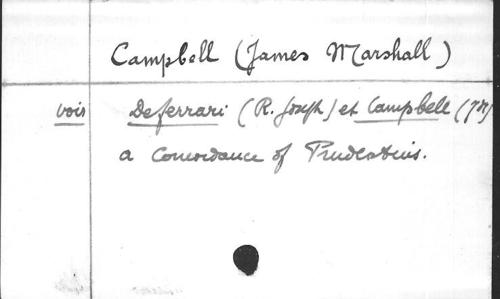 Campbell (James Marshall)
voir Deferrari (R. Joseph) et Campbell (J M)
a Concordance of Prudentius.